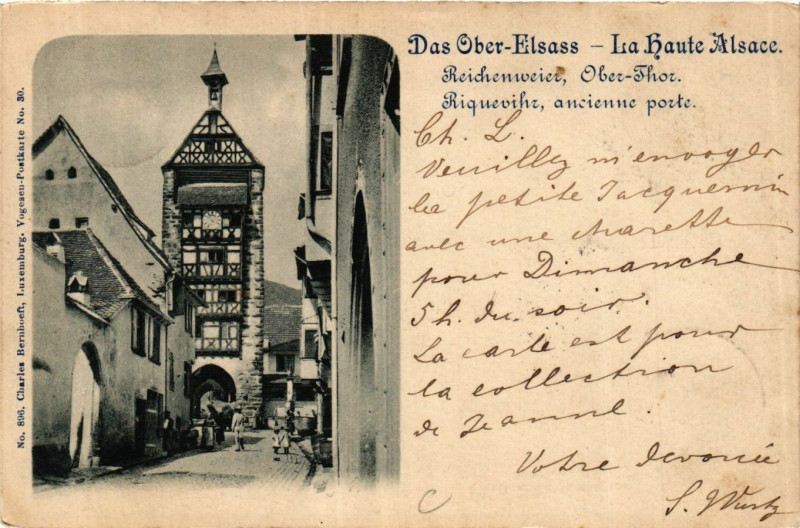 Das Ober-Elsass – La Haute Alsace.
Reichenweier, Ober-Thor.
Riquevihr, ancienne porte.
Ch. L.
Veuillez m'envoyer
la petite Jacquemin
avec une charette
pour Dimanche
5 h. du soir.
La carte est pour
la collection
de Jeanne.
Votre dévouée
S. Wurtz
No. 896. Charles Bernhoeft, Luxemburg. Vogesen-Postkarte No. 30.